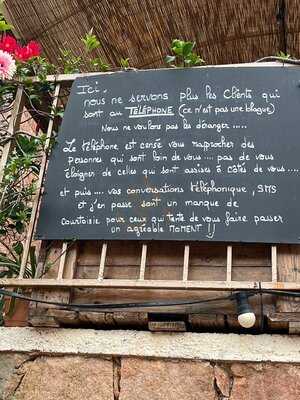 Ici,
nous ne servons plus les Clients qui
sont au TELEPHONE (ce n'est pas une blague)
Nous ne voulons pas les déranger .....
Le téléphone est censé vous rapprocher des
personnes qui sont loin de vous .... pas de vous
éloigner de celles qui sont assises à côtés de vous ....
et puis .... vos conversations téléphonique, SMS
et j'en passe sont un manque de
courtoisie pour ceux qui tente de vous faire passer
un agréable MOMENT !!